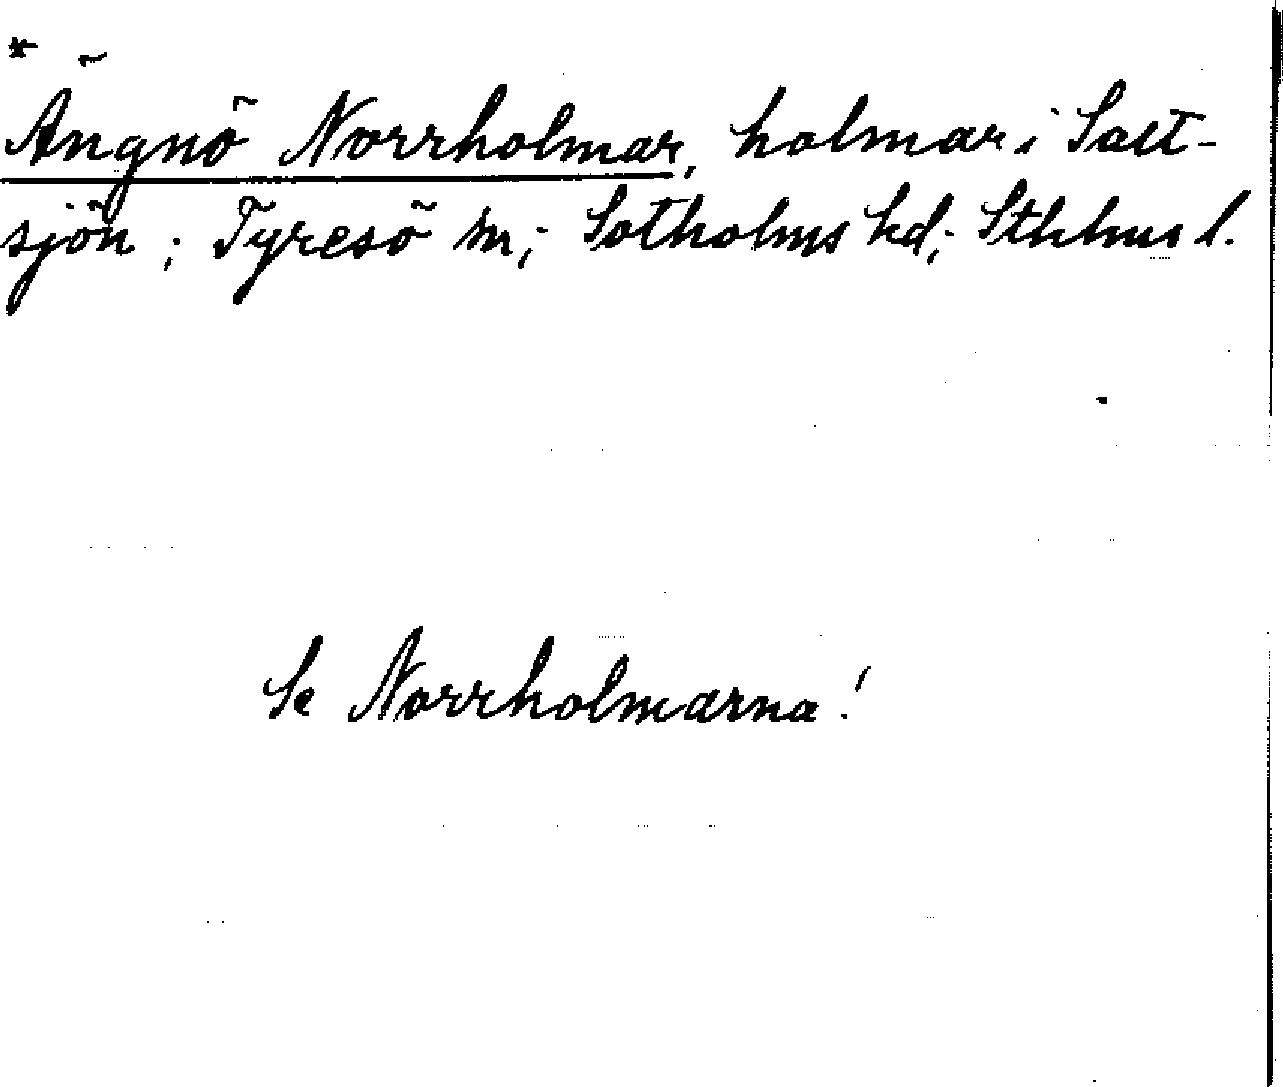 * Ängnö Norrholmar, holmar i Salt-
sjön; Tyresö sn; Sotholms hd; Sthlms l.
Se Norrholmarna!